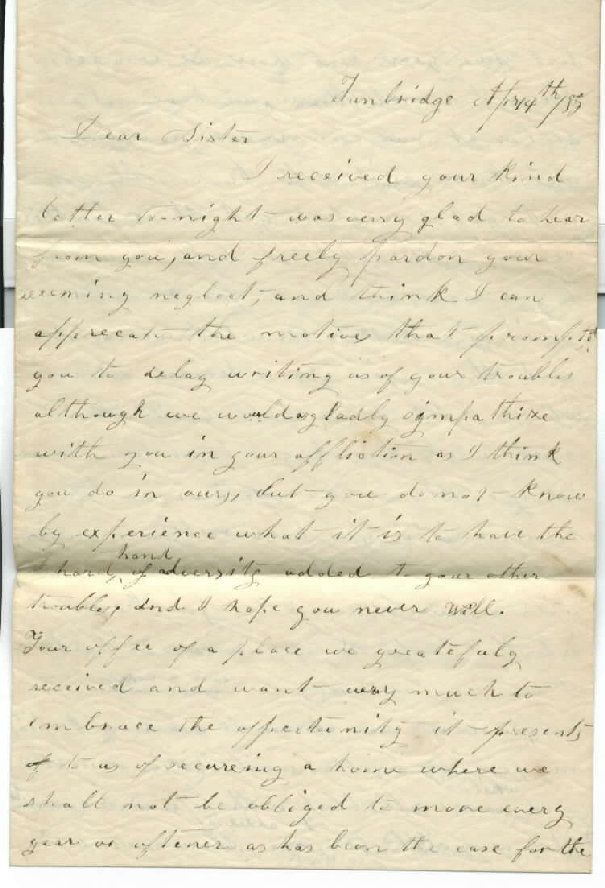 Tunbridge Apr 14th/85
Dear Sister
I received your kind
letter to-night was very glad to hear
from you, and freely pardon your
seeming neglect, and think I can
appreciate the motive that prompts
you to delay writing us of your troubles
although we would gladly sympathize
with you in your affliction as I think
you do in ours, but you do not know
by experience what it is to have the
hard hand of adversity added to your other
troubles, and I hope you never will.
Your offer of a place we greatefuly
received and want very much to
imbrace the oppertunity it presents
to us of secureing a home where we
shall not be obliged to move every
year or oftener as has been the case for the